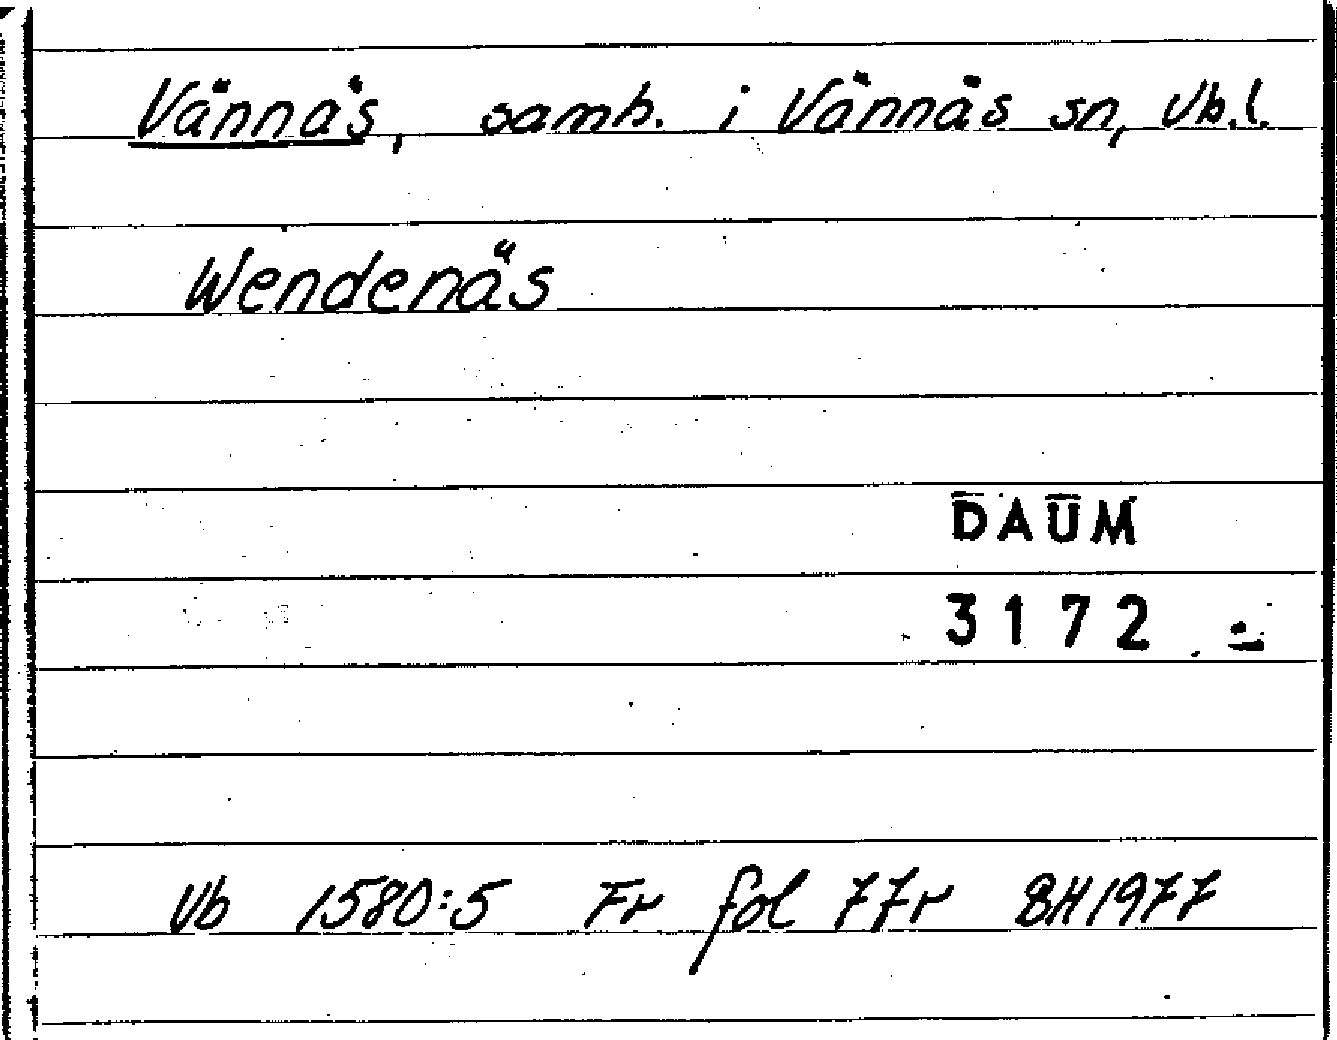 Vännäs, samh. i Vännäs sn, Vb.l.
Wendenäs
DAUM
3172
Vb 1580:5 Fr fol 77r BH1977